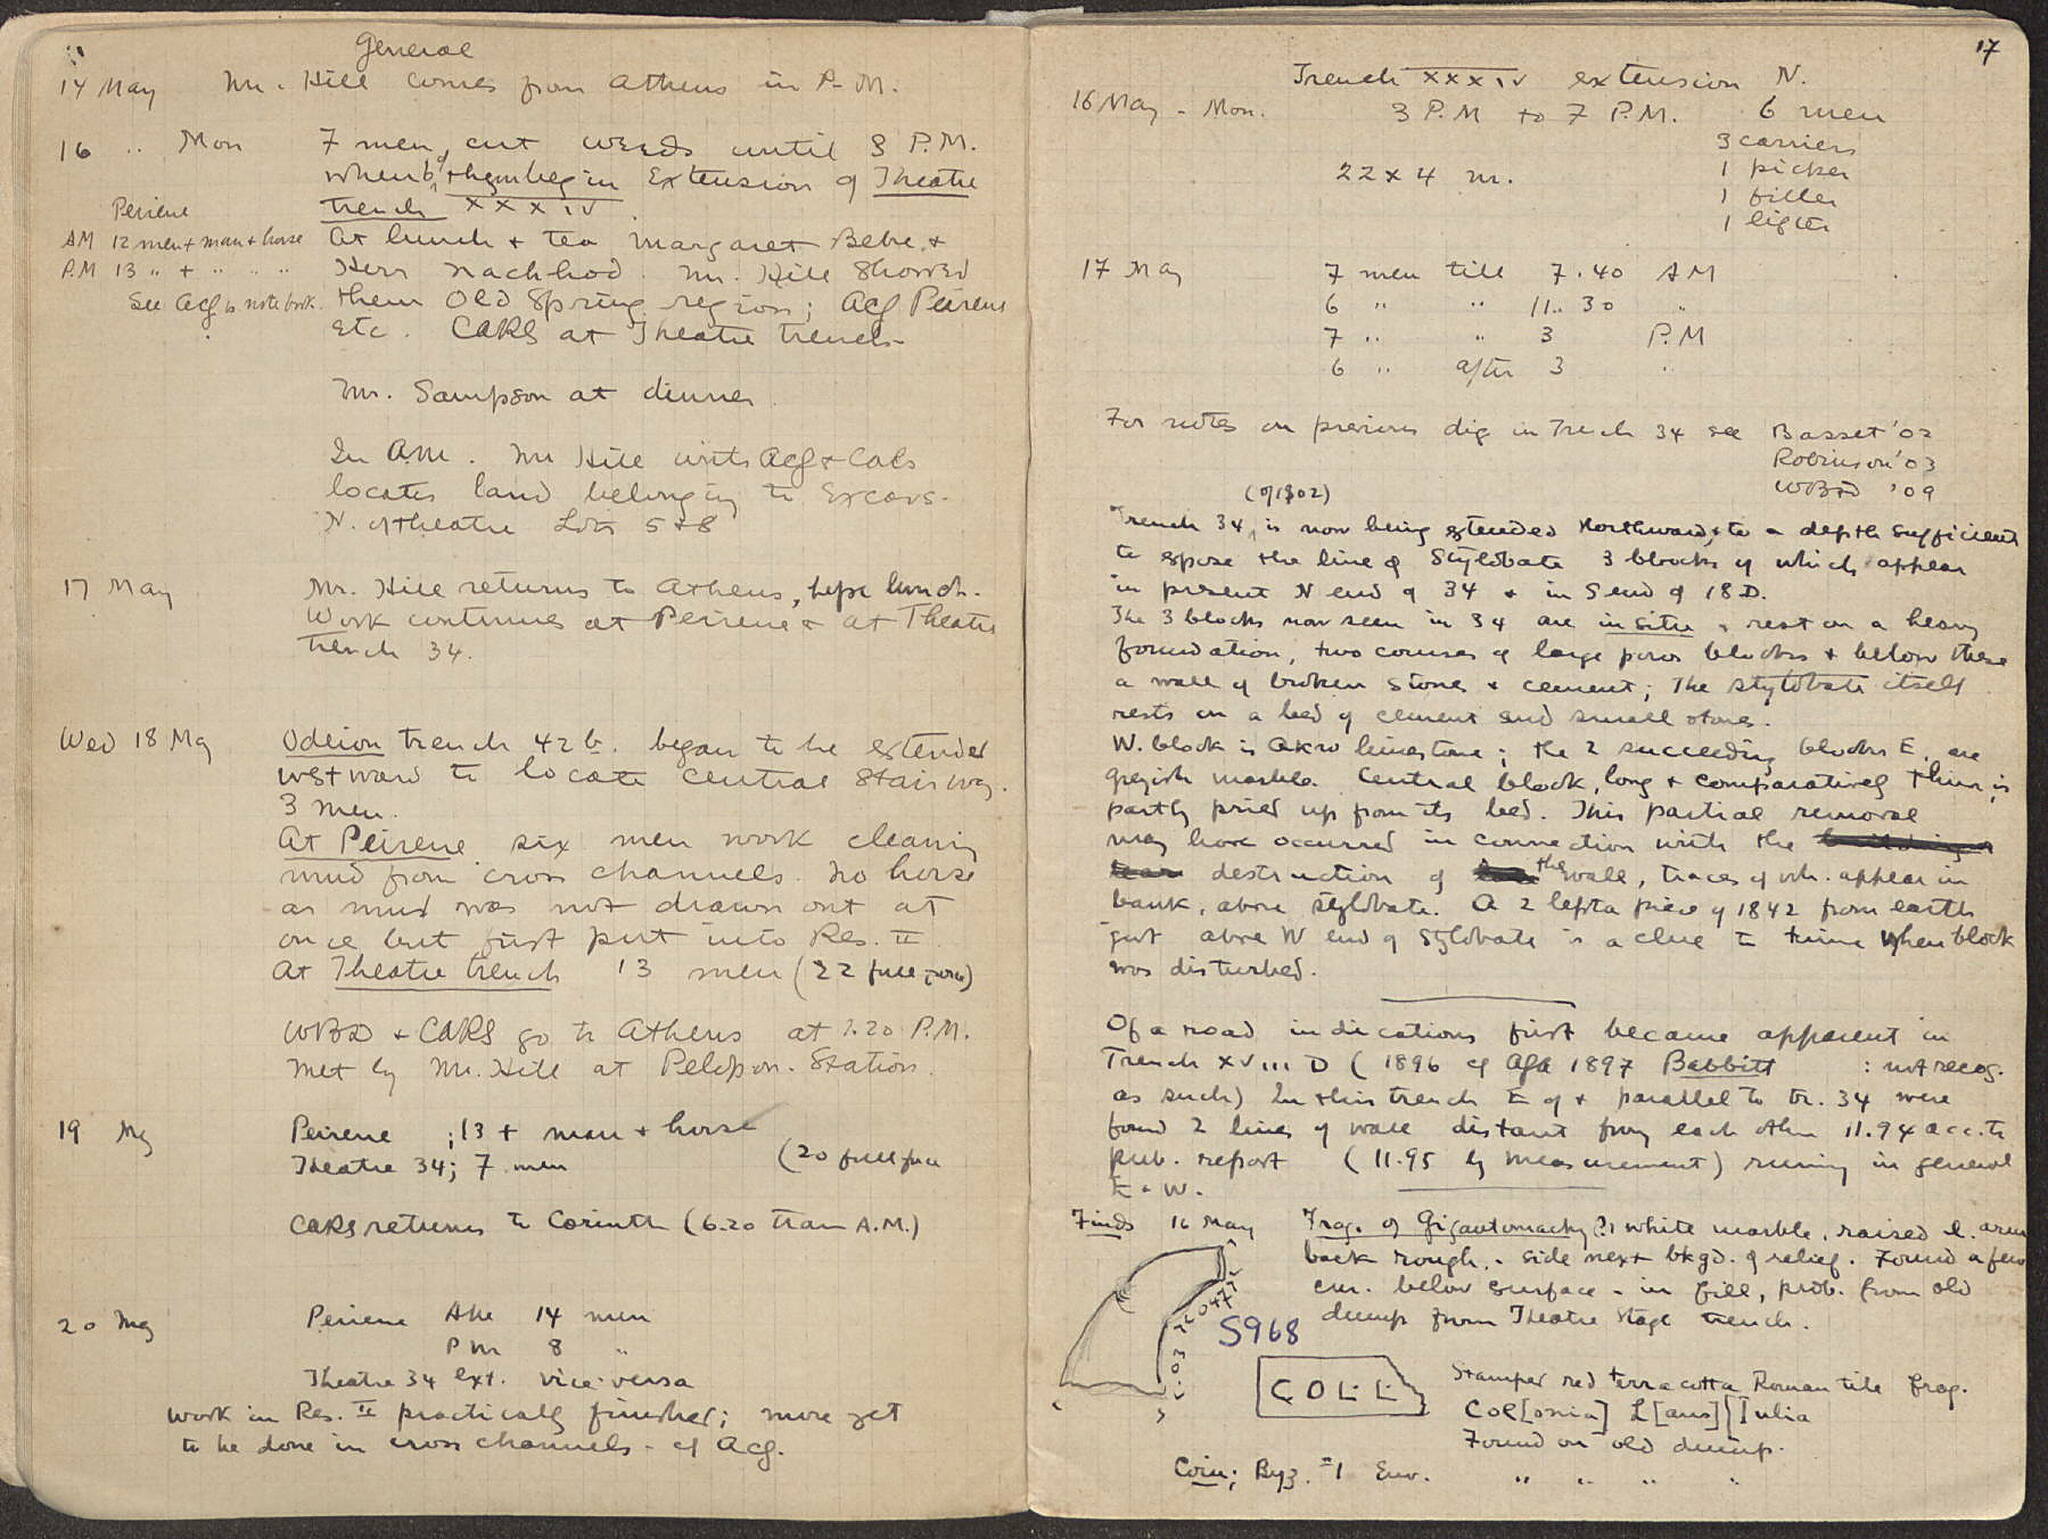 General
14 May Mr. Hill comes from Athens in P.M.
16 " Mon 7 men cut weeds until 3 P.M.
when 6 of them begin Extension of Theatre
trench XXXIV.
Peirene
AM 12 men + man + horse
P.M 13 " + " " "
See ACG's note book.
At lunch + tea Margaret Bebe +
Herr Nachhod. Mr. Hill showed
them Old Spring region; ACG Peirene
Etc. CARS at Theatre trench
Mr. Sampson at dinner
In A.M. Mr Hill with ACG + CARS
locates land belonging to Excavs.
N. of theatre Lots 5 + 8
17 May Mr. Hill returns to Athens, before lunch.
Work continues at Peirene + at Theatre
trench 34.
Wed 18 May Odeion trench 42 b. began to be extended
westward to locate central stairway.
3 men.
At Peirene six men work cleaning
mud from cross channels. No horse
as mud was not drawn out at
once but first put into Res. II
At Theatre trench 13 men (22 full)
WBD + CARS go to Athens at 2.20 P.M.
met by Mr. Hill at Pelopon. Station.
19 May Peirene ; 13 + man + horse
Theatre 34; 7 men (20 full
CARS returns to Corinth (6.20 train A.M.)
20 May Peirene AM 14 men
PM 8 "
Theatre 34 ext. vice versa
Work in Res. II practically finished; more yet
to be done in cross channels - cf ACG.
17
Trench XXXIV extension N.
16 May - Mon. 3 P.M to 7 P.M. 6 men
3 carriers
22 x 4 m. 1 picker
1 filler
1 lifter
17 May 7 men till 7.40 AM
6 " " 11.30 "
7 " " 3 P.M
6 " after 3 "
For notes on previous dig in Trench 34 see Basset '02
Robinson '03
WBD '09
(of 1902)
Trench 34 is now being extended Northward, to a depth sufficient
to expose the line of Stylobate 3 blocks of which appear
in present N end of 34 + in S end of 18 D.
The 3 blocks now seen in 34 are in situ + rest on a heavy
foundation, two courses of large poros blocks + below these
a wall of broken stones + cement; The stylobate itself
rests on a bed of cement and small stones.
W. block is Akro limestone; the 2 succeeding blocks E. are
greyish marble. Central block, long + comparatively thin, is
partly pried up from its bed. This partial removal
may have occurred in connection with the
destruction of the wall, traces of wh. appear in
bank, above stylobate. A 2 lepta piece of 1842 from earth
just above W end of Stylobate is a clue to time when block
was disturbed.
Of a road indications first became apparent in
Trench XVIII D (1896 cf AJA 1897 Babbitt : not recog.
as such) In this trench E of + parallel to tr. 34 were
found 2 lines of wall distant from each other 11.94 acc. to
pub. report (11.95 by measurement) running in general
E - W.
Finds 16 May Frag. of Gigantomachy (?) white marble, raised l. arm
back rough - side next bkgd. of relief. Found a few
cm. below surface - in fill, prob. from old
dump from Theatre Stage trench.
.047
.03
S968
COL L
Stamped red terracotta Roman tile frag.
Col[onia] L[aus] [Iulia
Found on old dump.
Coin; Byz. #1 Env. " " " "